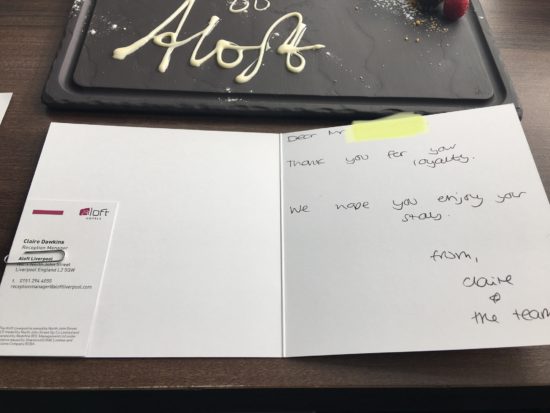 Aloft
Dear Mr
Thank you for your
loyalty.
We hope you enjoy your
stay.
from,
Claire
&
the team
aloft
HOTELS
Claire Dawkins
Reception Manager
Aloft Liverpool
North John Street
Liverpool England L2 5QW
T 0151 294 4050
receptionmanager@aloftliverpool.com